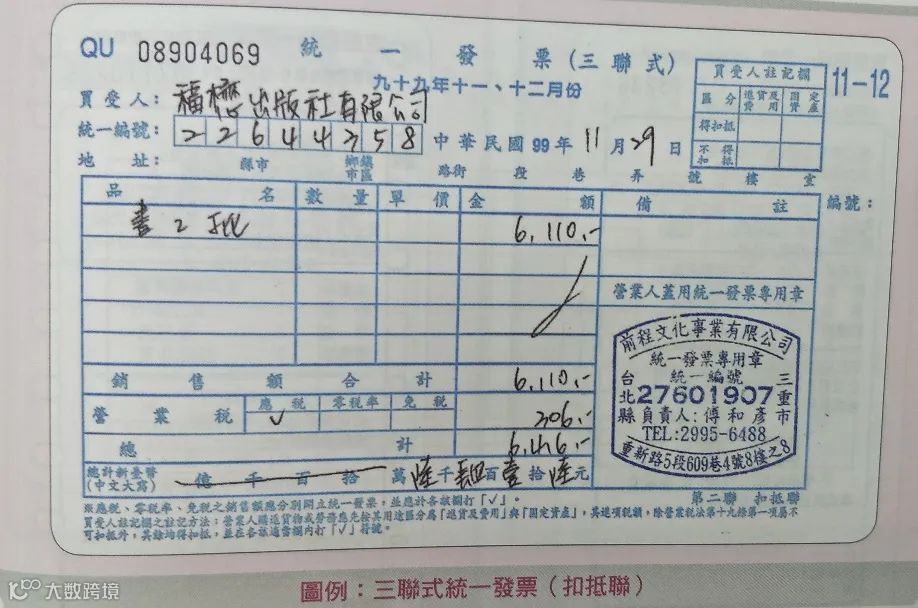 QU 08904069 統一發票(三聯式)
九十九年十一、十二月份
11-12
買受人註記欄
區分 進貨及費用 固定資產
得扣抵
不得扣抵
買受人: 福懋出版社有限公司
統一編號: 22644358 中華民國99年11月29日
地址: 縣市 鄉鎮市區 路街 段 巷 弄 號 樓 室
品名 數量 單價 金額 備註 編號:
書2批 6,110.-
營業人蓋用統一發票專用章
前程文化事業有限公司
統一發票專用章
台北縣 統一編號 三重市
27601907
負責人:傅和彥
TEL:2995-6488
重新路5段609巷4號8樓之8
銷售額合計 6,110.-
營業稅 應稅 ✓ 零稅率 免稅 306.-
總計 6,416.-
總計新臺幣(中文大寫) 億千百拾萬陸千肆百壹拾陸元
第二聯 扣抵聯
※應稅、零稅率、免稅之銷售額應分別開立統一發票,並應於各該欄打「✓」。
買受人註記欄之註記方法:營業人購進貨物或勞務應先按其用途區分為「進貨及費用」與「固定資產」,其進項稅額,除營業稅法第十九條第一項屬不
可扣抵外,其餘均得扣抵,並在各該適當欄內打「✓」符號。
大数跨境
圖例:三聯式統一發票(扣抵聯)